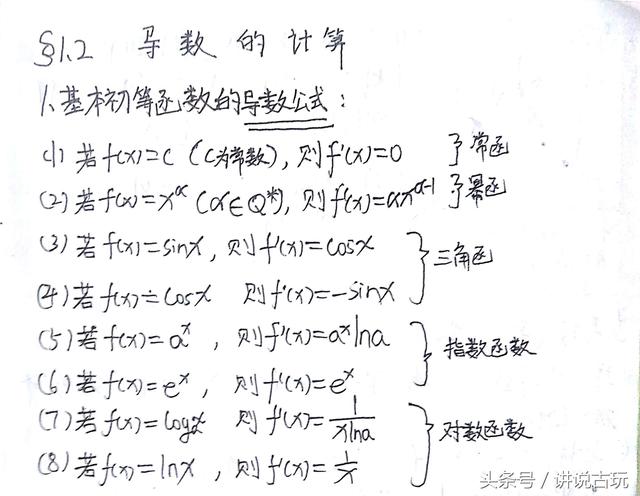 §1.2 导数的计算
1、基本初等函数的导数公式：
(1) 若f(x)=c（c为常数），则f'(x)=0 }常函
(2) 若f(x)=x^α（α∈Q*），则f'(x)=αx^(α-1) }幂函
(3) 若f(x)=sinx，则f'(x)=cosx
(4) 若f(x)=cosx 则f'(x)=-sinx }三角函
(5) 若f(x)=a^x，则f'(x)=a^x lna
(6) 若f(x)=e^x，则f'(x)=e^x }指数函数
(7) 若f(x)=logₐx 则f'(x)=1/(xlna)
(8) 若f(x)=lnx，则f'(x)=1/x }对数函数
头条号／讲说古玩